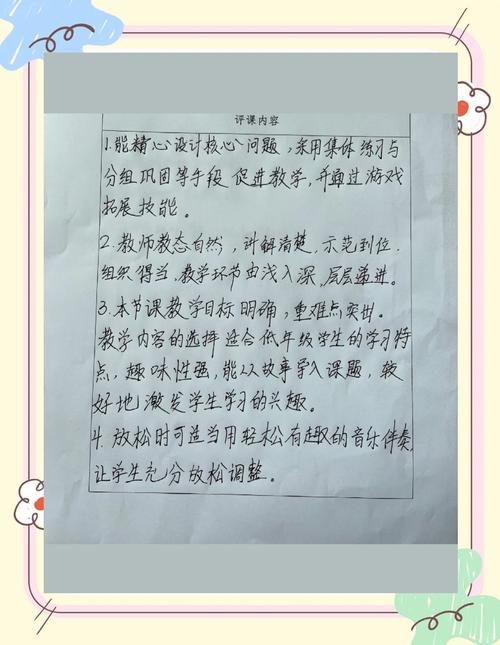 评课内容
1.能精心设计核心问题，采用集体练习与
分组巩固等手段促进教学，并通过游戏
拓展技能。
2.教师教态自然，讲解清楚，示范到位.
组织得当，教学环节由浅入深，层层递进。
3.本节课教学目标明确，重难点突出。
教学内容的选择适合低年级学生的学习特
点，趣味性强，能以故事导入课题，较
好地激发学生学习的兴趣。
4.放松时可适当用轻松有趣的音乐伴奏，
让学生充分放松调整。